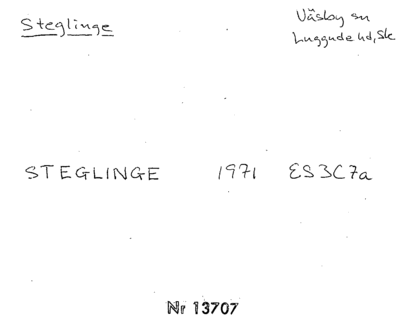 Steglinge
Väsby sn
Luggude hd, Sk
STEGLINGE 1971 ES3C7a
Nr 13707